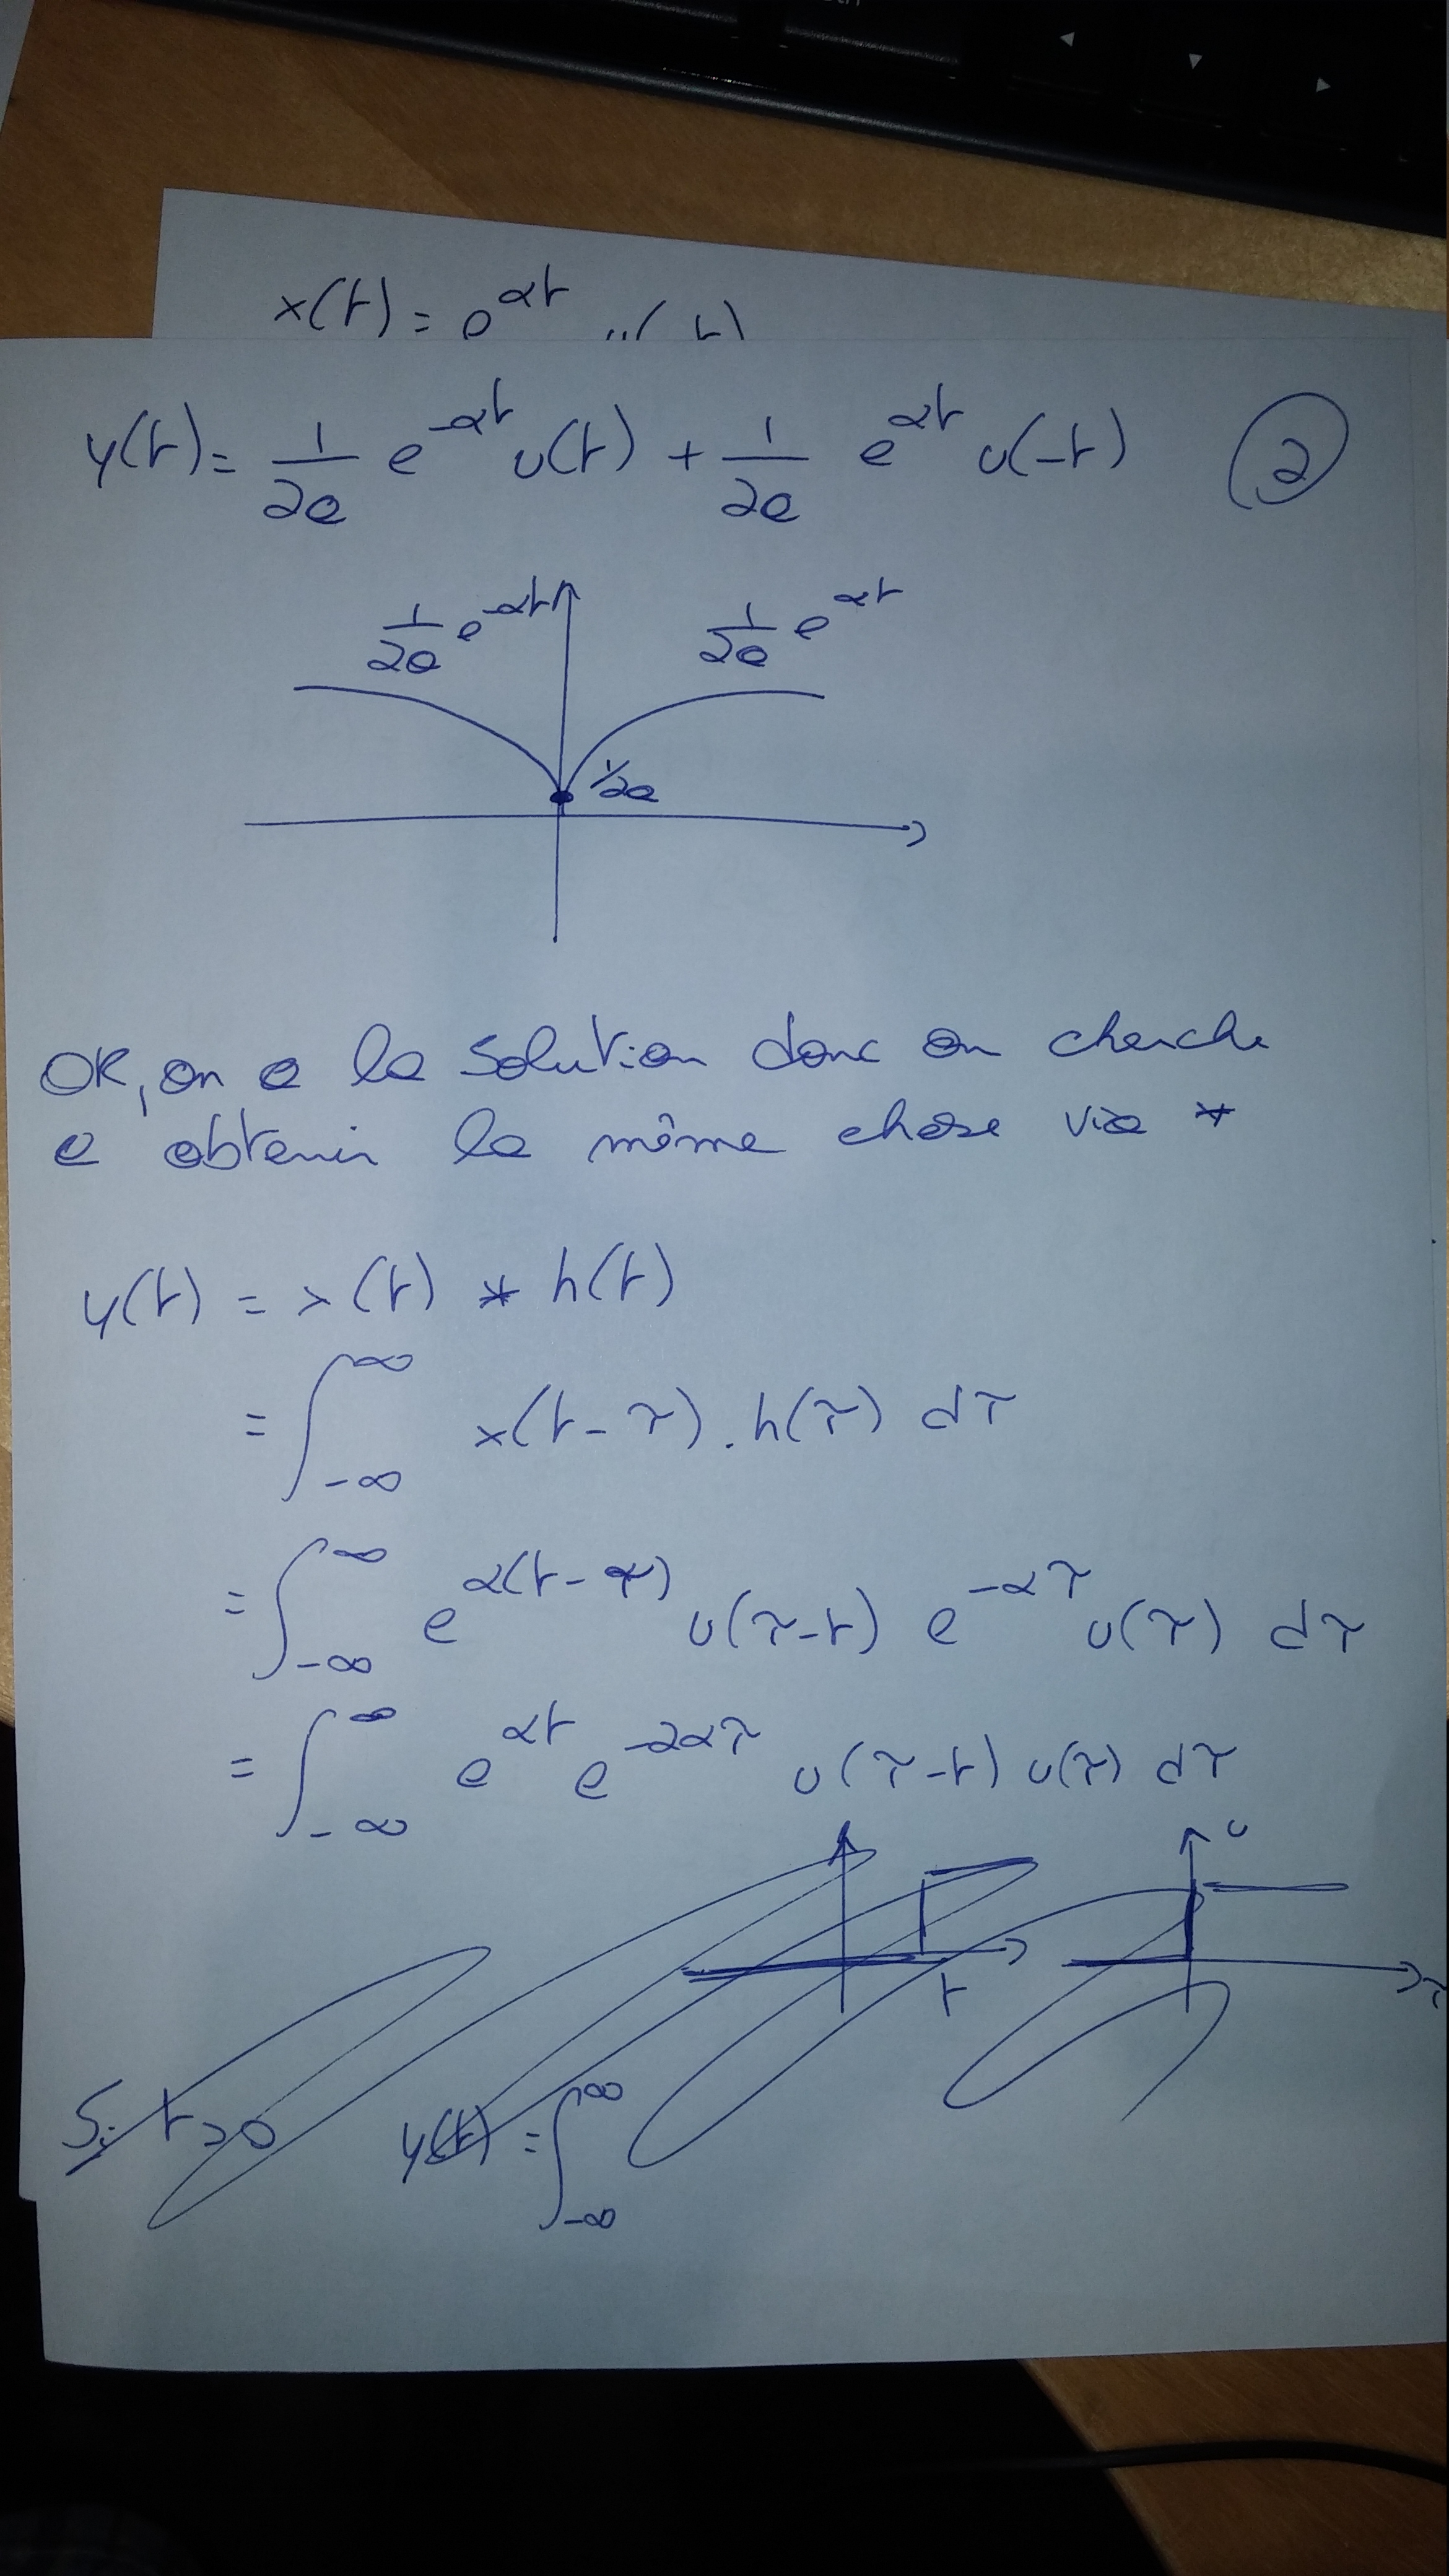 x(t) = e^{αt} u(-t)
y(t) = \frac{1}{2a} e^{-αt} u(t) + \frac{1}{2a} e^{αt} u(-t) ②
\frac{1}{2a} e^{-αt} \frac{1}{2a} e^{αt}
1/2a
OK, on a la solution donc on cherche
a obtenir la même chose via *
y(t) = x(t) * h(t)
= ∫_{-∞}^{∞} x(t-τ) . h(τ) dτ
= ∫_{-∞}^{∞} e^{α(t-τ)} u(τ-t) e^{-ατ} u(τ) dτ
= ∫_{-∞}^{∞} e^{αt} e^{-2ατ} u(τ-t) u(τ) dτ
u
t τ
Si t>0 y(t) = ∫_{-∞}^{∞}